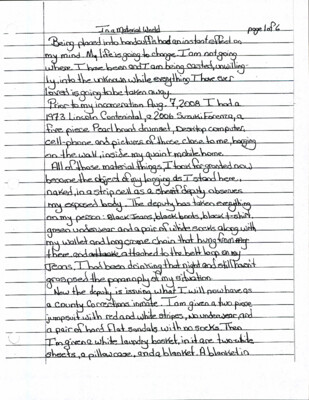 In a Material World page 1 of 6
Being placed into handcuffs had an instant effect on
my mind. My life is going to change. I am not going
where I have been and I am being casted, unwilling-
ly, into the unknown while everything I have ever
loved is going to be taken away.
Prior to my incarceration Aug. 7, 2008 I had a
1973 Lincoln Continental, a 2006 Suzuki Forenza, a
five piece Pearl brand drumset, Desktop computer,
cell-phone and pictures of those close to me, hanging
on the wall, inside my quaint mobile home.
All of those material things, I took for granted now
became the object of my longing as I stand here,
naked, in a strip cell as a Sheriff deputy observes
my exposed body. The deputy has taken everything
on my person: Black Jeans, black boots, black t-shirt,
green underwear and a pair of white socks along with
my wallet and long chrome chain that hung from
there and attached to the belt loop on my
Jeans. I had been drinking that night and still hadn't
grasped the of my situation.
Now the deputy is issuing what I will now have as
a County Corrections inmate. I am given a two piece
jumpsuit with red and white stripes, no underwear, and
a pair of hard flat sandals with no socks. Then
I'm given a white laundry basket, in it are two white
sheets, a pillow case, and a blanket. A blanket in